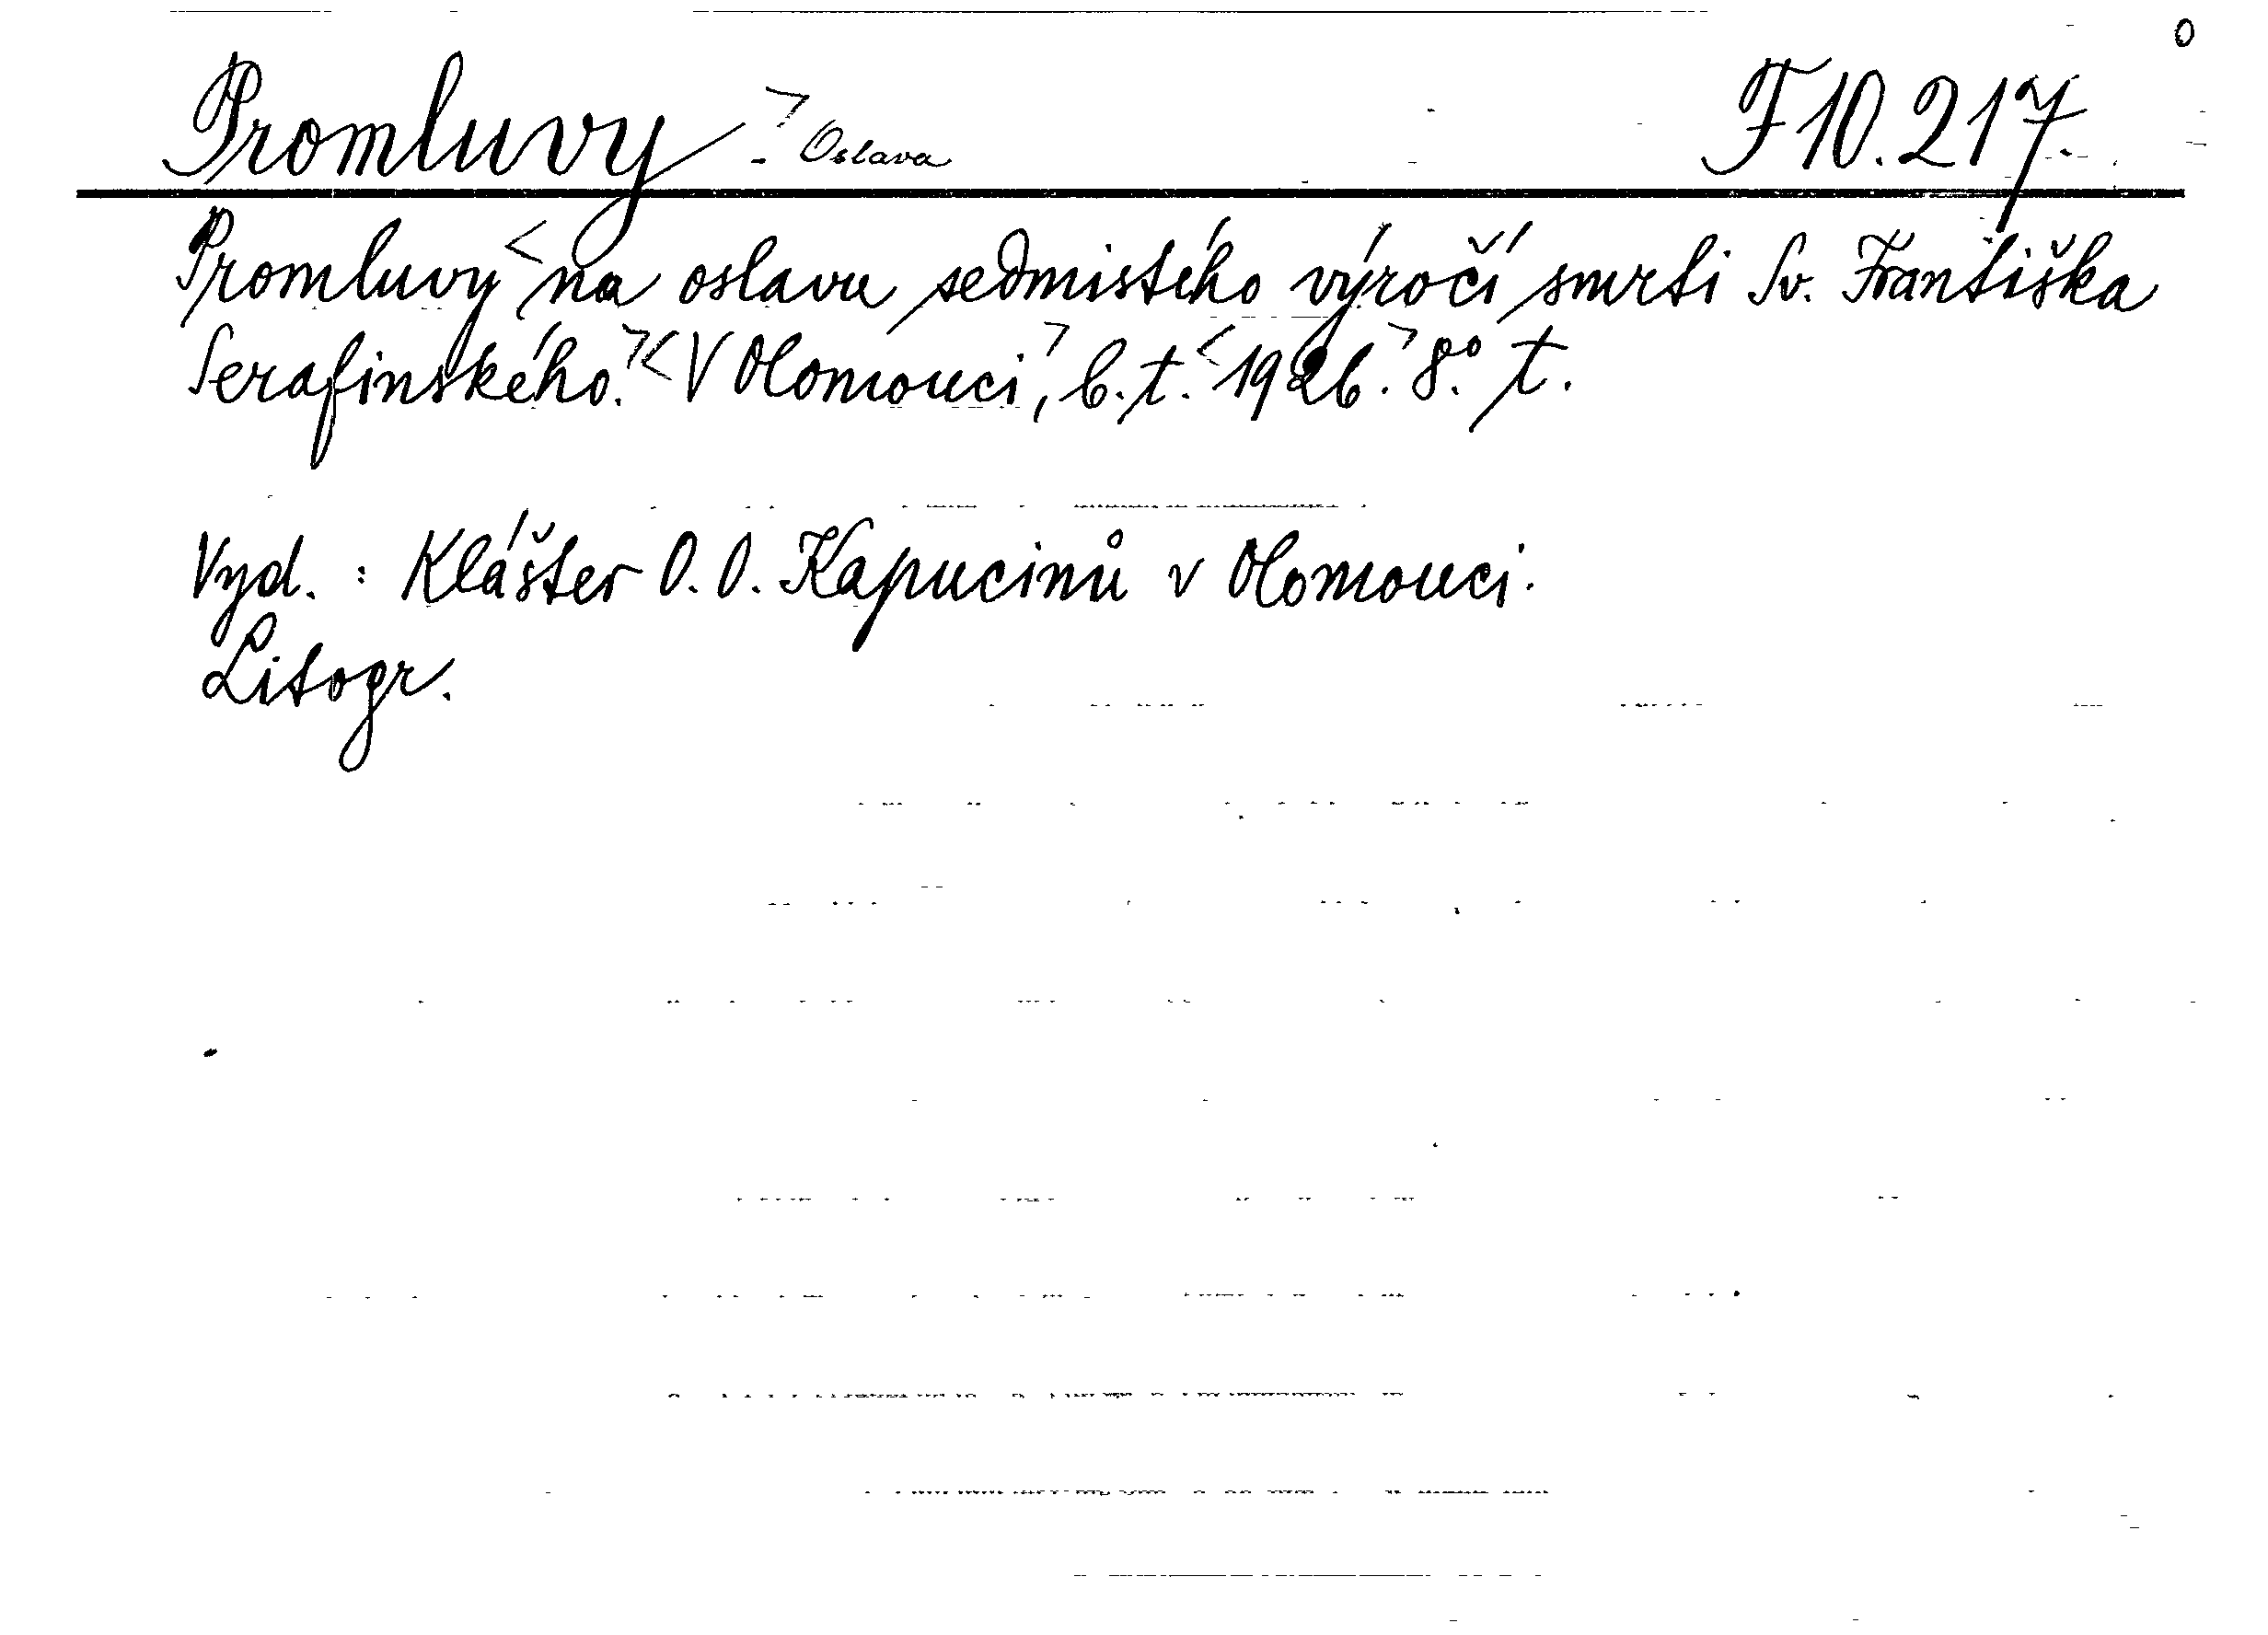 Promluvy - Oslava F 10.217. 0
Promluvy na oslavu sedmistého výročí smrti Sv. Františka
Serafinského. V Olomouci, b. t. 1926. 8.° t.
Vyd. : Klášter O. O. Kapucinů v Olomouci.
Litogr.